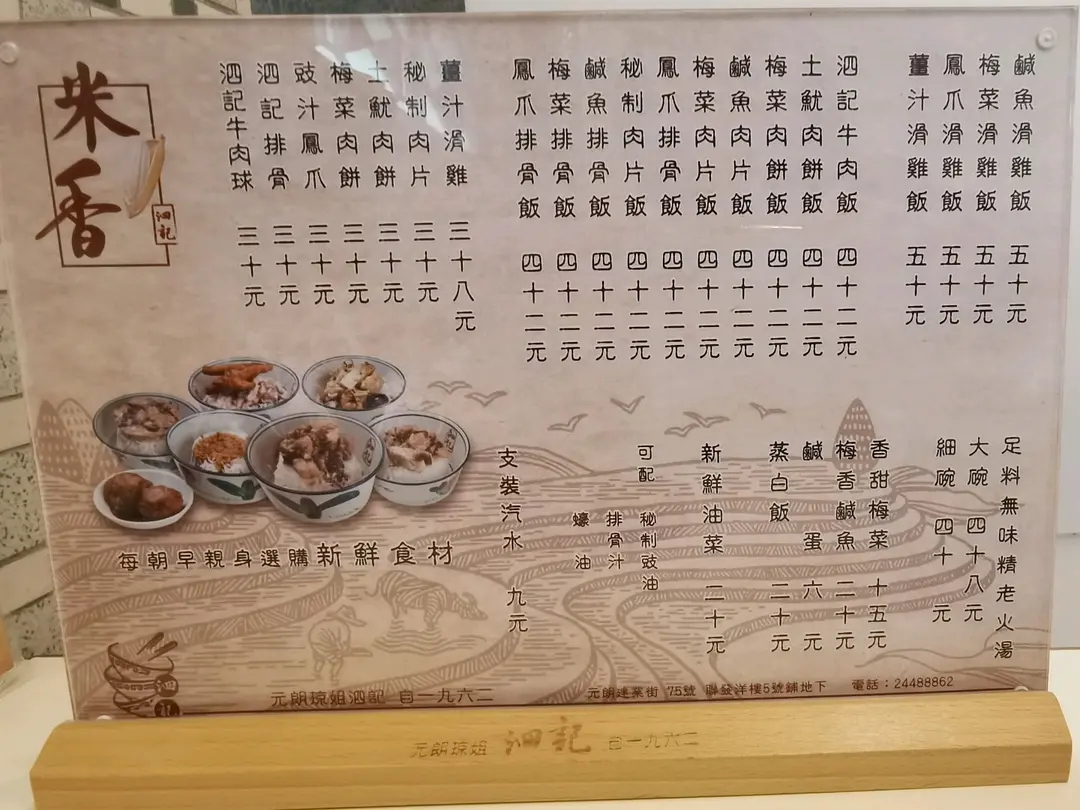 鹹魚滑雞飯 五十元
梅菜滑雞飯 五十元
鳳爪滑雞飯 五十元
薑汁滑雞飯 五十元
泗記牛肉飯 四十二元
土魷肉餅飯 四十二元
梅菜肉餅飯 四十二元
鹹魚肉片飯 四十二元
梅菜肉片飯 四十二元
鳳爪排骨飯 四十二元
秘制肉片飯 四十二元
鹹魚排骨飯 四十二元
梅菜排骨飯 四十二元
鳳爪排骨飯 四十二元
薑汁滑雞 三十八元
秘制肉片 三十元
土魷肉餅 三十元
梅菜肉餅 三十元
豉汁鳳爪 三十元
泗記排骨 三十元
泗記牛肉球 三十元
米香
泗記
足料無味精老火湯
大碗 四十八元
細碗 四十元
香甜梅菜 十五元
梅香鹹魚 二十元
鹹蛋 六元
蒸白飯 二十元
新鮮油菜 二十元
可配
秘制豉油
排骨汁
蠔油
支裝汽水 九元
每朝早親身選購新鮮食材
泗記
元朗琼姐泗記 自一九六二
元朗建業街 75號 聯發洋樓5號鋪地下 電話：24488862
元朗琼姐 泗記 自一九六二